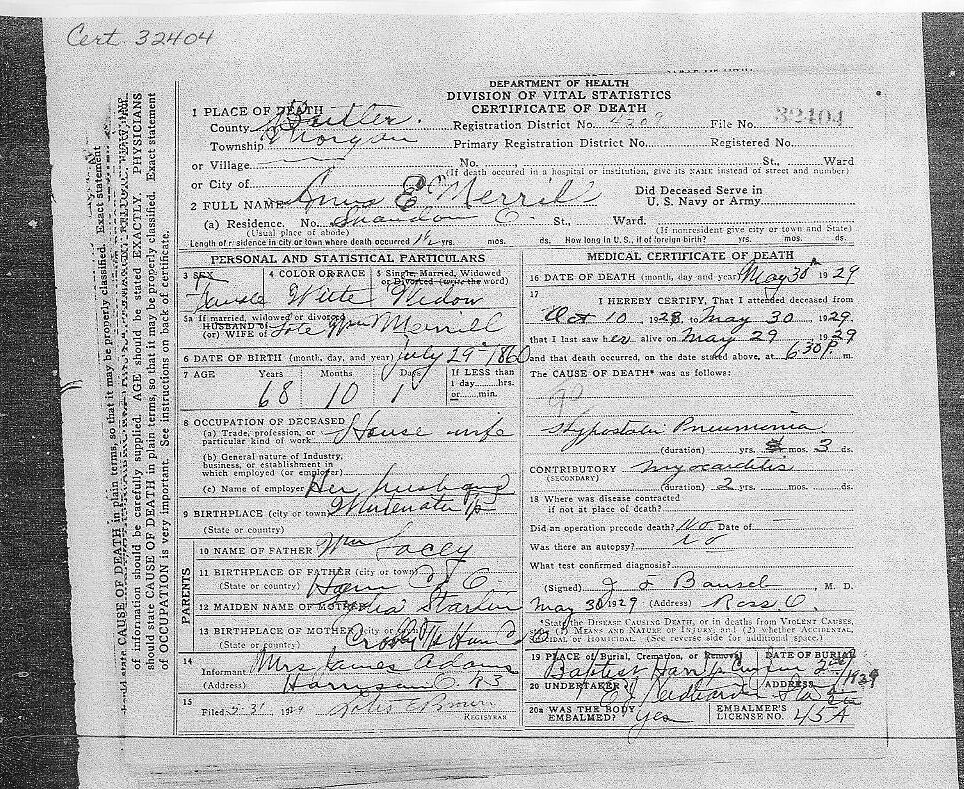 Cert. 32404
DEPARTMENT OF HEALTH
DIVISION OF VITAL STATISTICS
CERTIFICATE OF DEATH
1 PLACE OF DEATH
County Butler. Registration District No. 4209 File No. 32404
Township Morgan Primary Registration District No. Registered No.
or Village No. St., Ward
(If death occured in a hospital or institution, give its NAME instead of street and number)
or City of
2 FULL NAME E Merrill Did Deceased Serve in
U. S. Navy or Army
(a) Residence. No. Shandon O. St., Ward.
(Usual place of abode) (If nonresident give city or town and State)
Length of residence in city or town where death occurred yrs. mos. ds. How long in U. S., if of foreign birth? yrs. mos. ds.
PERSONAL AND STATISTICAL PARTICULARS
3 SEX 4 COLOR OR RACE 5 Single, Married, Widowed
or Divorced (write the word)
Female White Widow
5a If married, widowed or divorced
HUSBAND of
(or) WIFE of Wm Merrill
6 DATE OF BIRTH (month, day, and year) July 29 1860
7 AGE Years Months Days If LESS than
1 day hrs.
or min.
68 10 1
8 OCCUPATION OF DECEASED
(a) Trade, profession, or
particular kind of work House wife
(b) General nature of Industry,
business, or establishment in
which employed (or employer)
(c) Name of employer Her husband
9 BIRTHPLACE (city or town)
(State or country)
PARENTS
10 NAME OF FATHER Wm Lacey
11 BIRTHPLACE OF FATHER (city or town)
(State or country)
12 MAIDEN NAME OF MOTHER
13 BIRTHPLACE OF MOTHER (city or town)
(State or country) Crosby
14
Informant Mrs James Adams
(Address) Harrison O. R 3
15
Filed 5-31 1929 Brown
REGISTRAR
MEDICAL CERTIFICATE OF DEATH
16 DATE OF DEATH (month, day and year) May 30 1929
17
I HEREBY CERTIFY, That I attended deceased from
Oct 10, 1928, to May 30 1929.
that I last saw her alive on May 29 1929
and that death occurred, on the date stated above, at 6 30 P. m.
The CAUSE OF DEATH* was as follows:
Hypostatic Pneumonia
(duration) yrs. mos. 3 ds.
CONTRIBUTORY Myocarditis
(SECONDARY)
(duration) 2 yrs. mos. ds.
18 Where was disease contracted
if not at place of death?
Did an operation precede death? No Date of
Was there an autopsy? no
What test confirmed diagnosis?
(Signed) M. D.
May 30 1929 (Address) Ross O
*State the DISEASE CAUSING DEATH, or in deaths from VIOLENT CAUSES,
(1) MEANS AND NATURE OF INJURY; and (2) whether ACCIDENTAL,
SUICIDAL or HOMICIDAL. (See reverse side for additional space.)
19 PLACE of Burial, Cremation, or Removal DATE OF BURIAL
Baptist
1929
20 UNDERTAKER ADDRESS
20a WAS THE BODY
EMBALMED? yes EMBALMER'S
LICENSE NO. 45A
of information should be carefully supplied. AGE should be stated EXACTLY. PHYSICIANS
should state CAUSE OF DEATH in plain terms, so that it may be properly classified. Exact statement
of OCCUPATION is very important. See instructions on back of certificate.